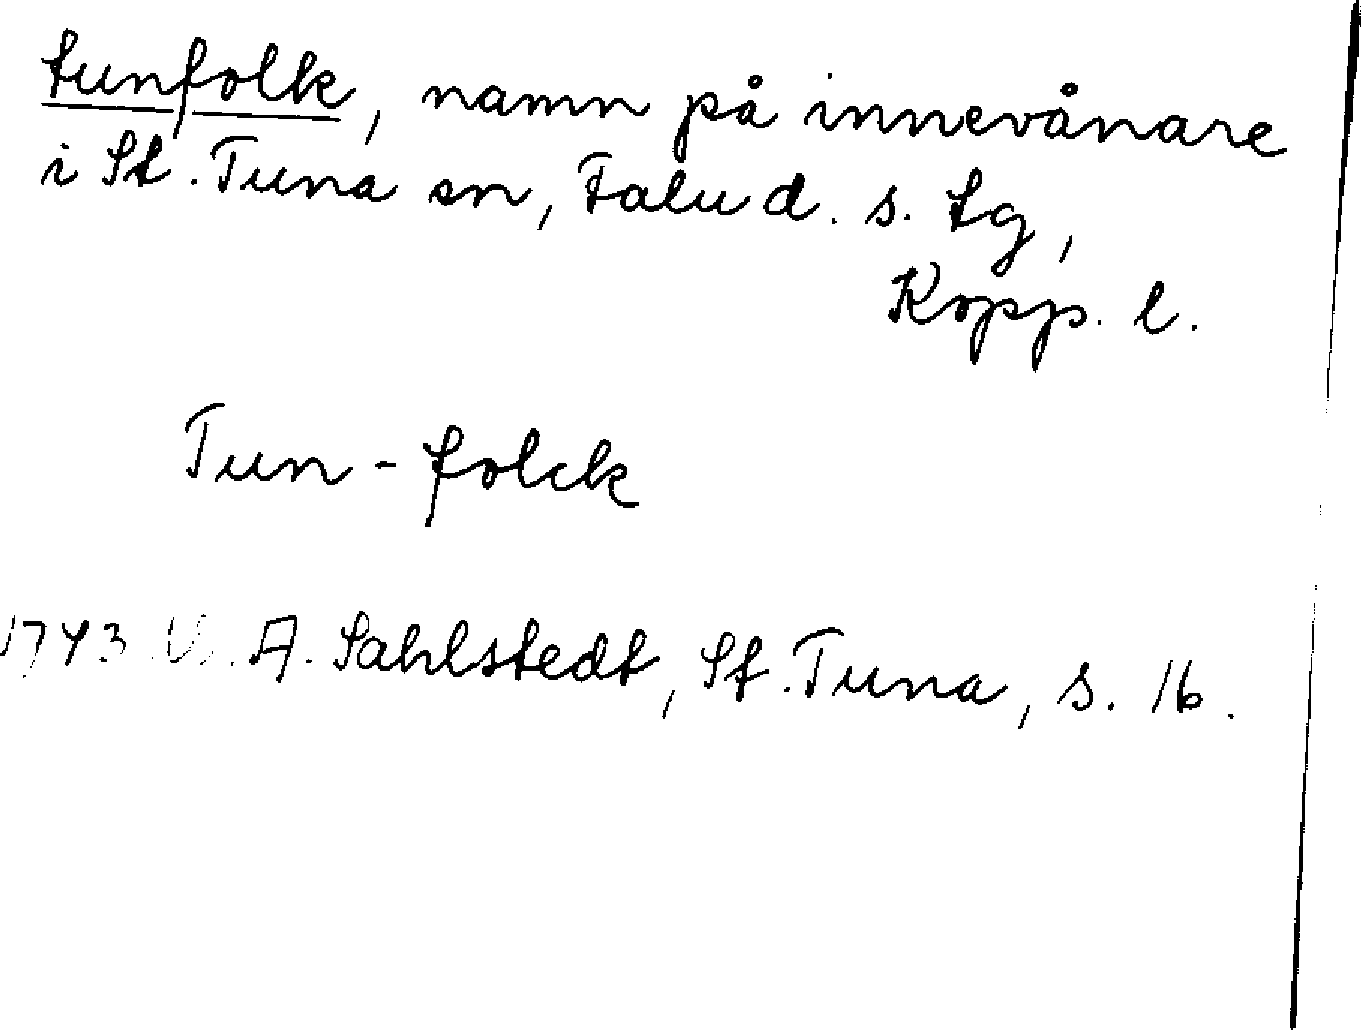 tunfolk, namn på innevånare
i St. Tuna sn, Falu d. s. tg,
Kopp. l.
Tun-folck
1743 A. Sahlstedt, St. Tuna, s. 16.